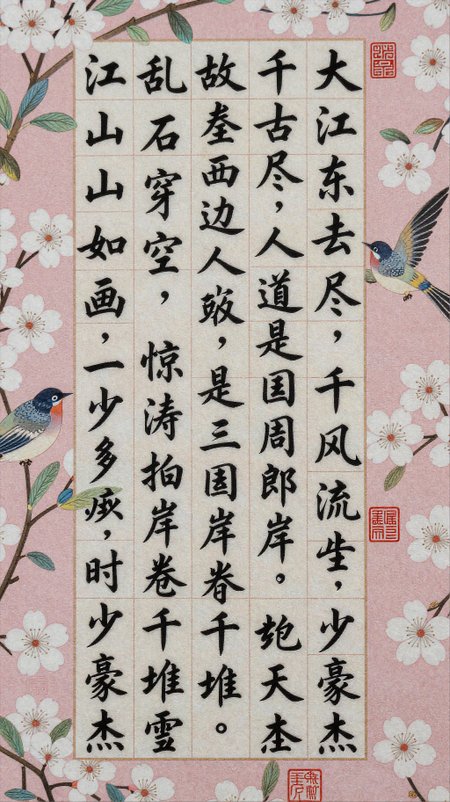 大江东去尽，千风流，少豪杰
千古尽，人道是囯周郎岸。天
故西边人，是三国岸眷千堆。
乱石穿空，惊涛拍岸卷千堆雪
江山山如画，一少多，时少豪杰